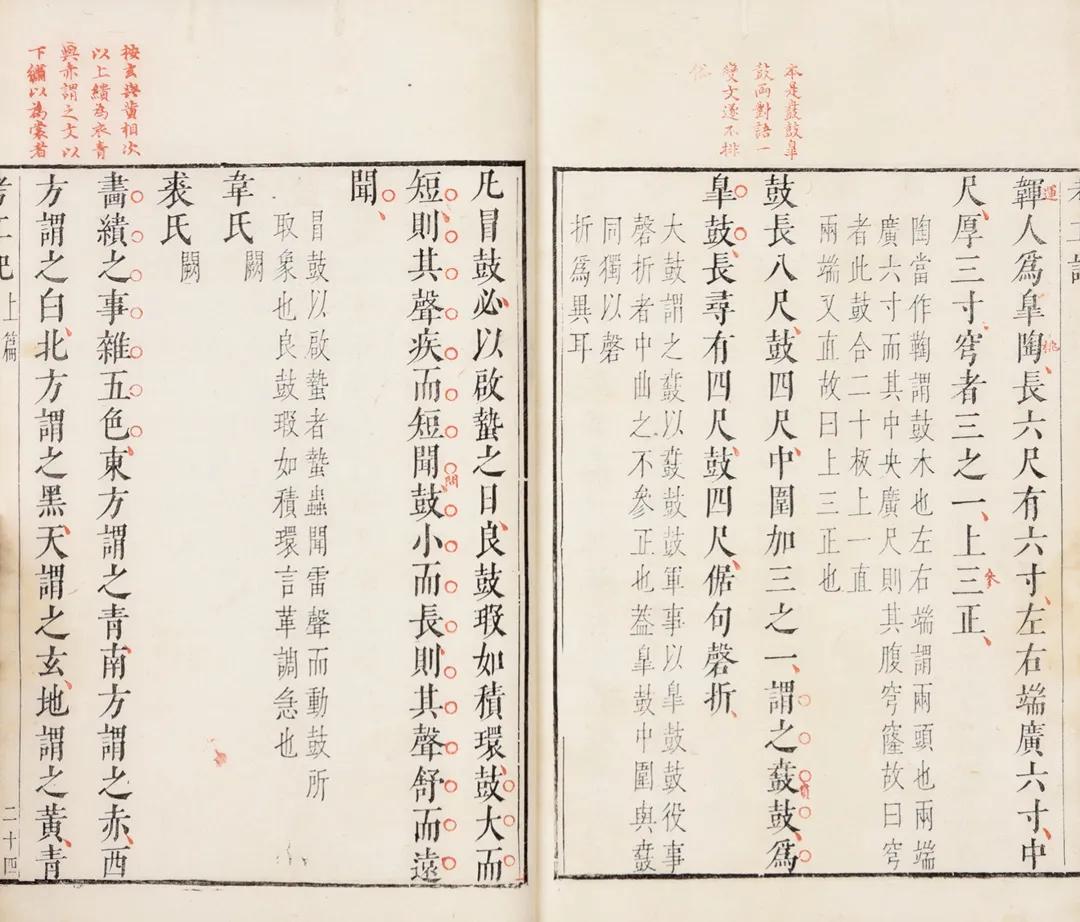 本是鼖鼓臯
鼓兩對語一
變文遂不排
俗
考工記
韗人爲臯陶長六尺有六寸左右端廣六寸中
運
桃
尺厚三寸穹者三之一上三正
參
陶當作鞠謂鼓木也左右端謂兩頭也兩端
廣六寸而其中央廣尺則其腹穹窿故曰穹
者此鼓合二十板上一直
兩端又直故曰上三正也
鼓長八尺鼓四尺中圍加三之一謂之鼖鼓爲
臯鼓長尋有四尺鼓四尺倨句磬折
大鼓謂之鼖以鼖鼓鼓軍事以臯鼓鼓役事
磬折者中曲之不參正也蓋臯鼓中圍與鼖
同獨以磬
折爲異耳
按玄與黃相次
以上繢為衣青
與赤謂之文以
下繡以為裳者
凡冒鼓必以啟蟄之日良鼓瑕如積環鼓大而
短則其聲疾而短聞鼓小而長則其聲舒而遠
問
聞
冒鼓以啟蟄者蟄蟲聞雷聲而動鼓所
取象也良鼓瑕如積環言革調急也
韋氏闕
裘氏闕
畵繢之事雜五色東方謂之青南方謂之赤西
方謂之白北方謂之黑天謂之玄地謂之黃青
考工記 上篇 二十四